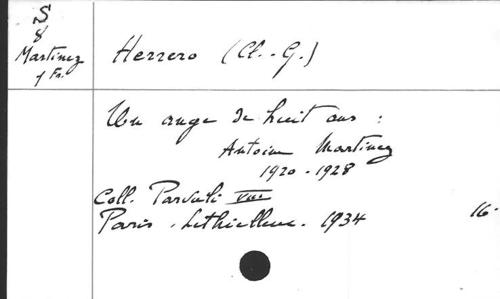 S
8
Martinez
f Fr.
Herrero (Cl.-G.)
Un ange de huit ans :
Antoine Martinez
1920 - 1928
Coll. Parvuli VIII
Paris, Lethielleux. 1934
16-